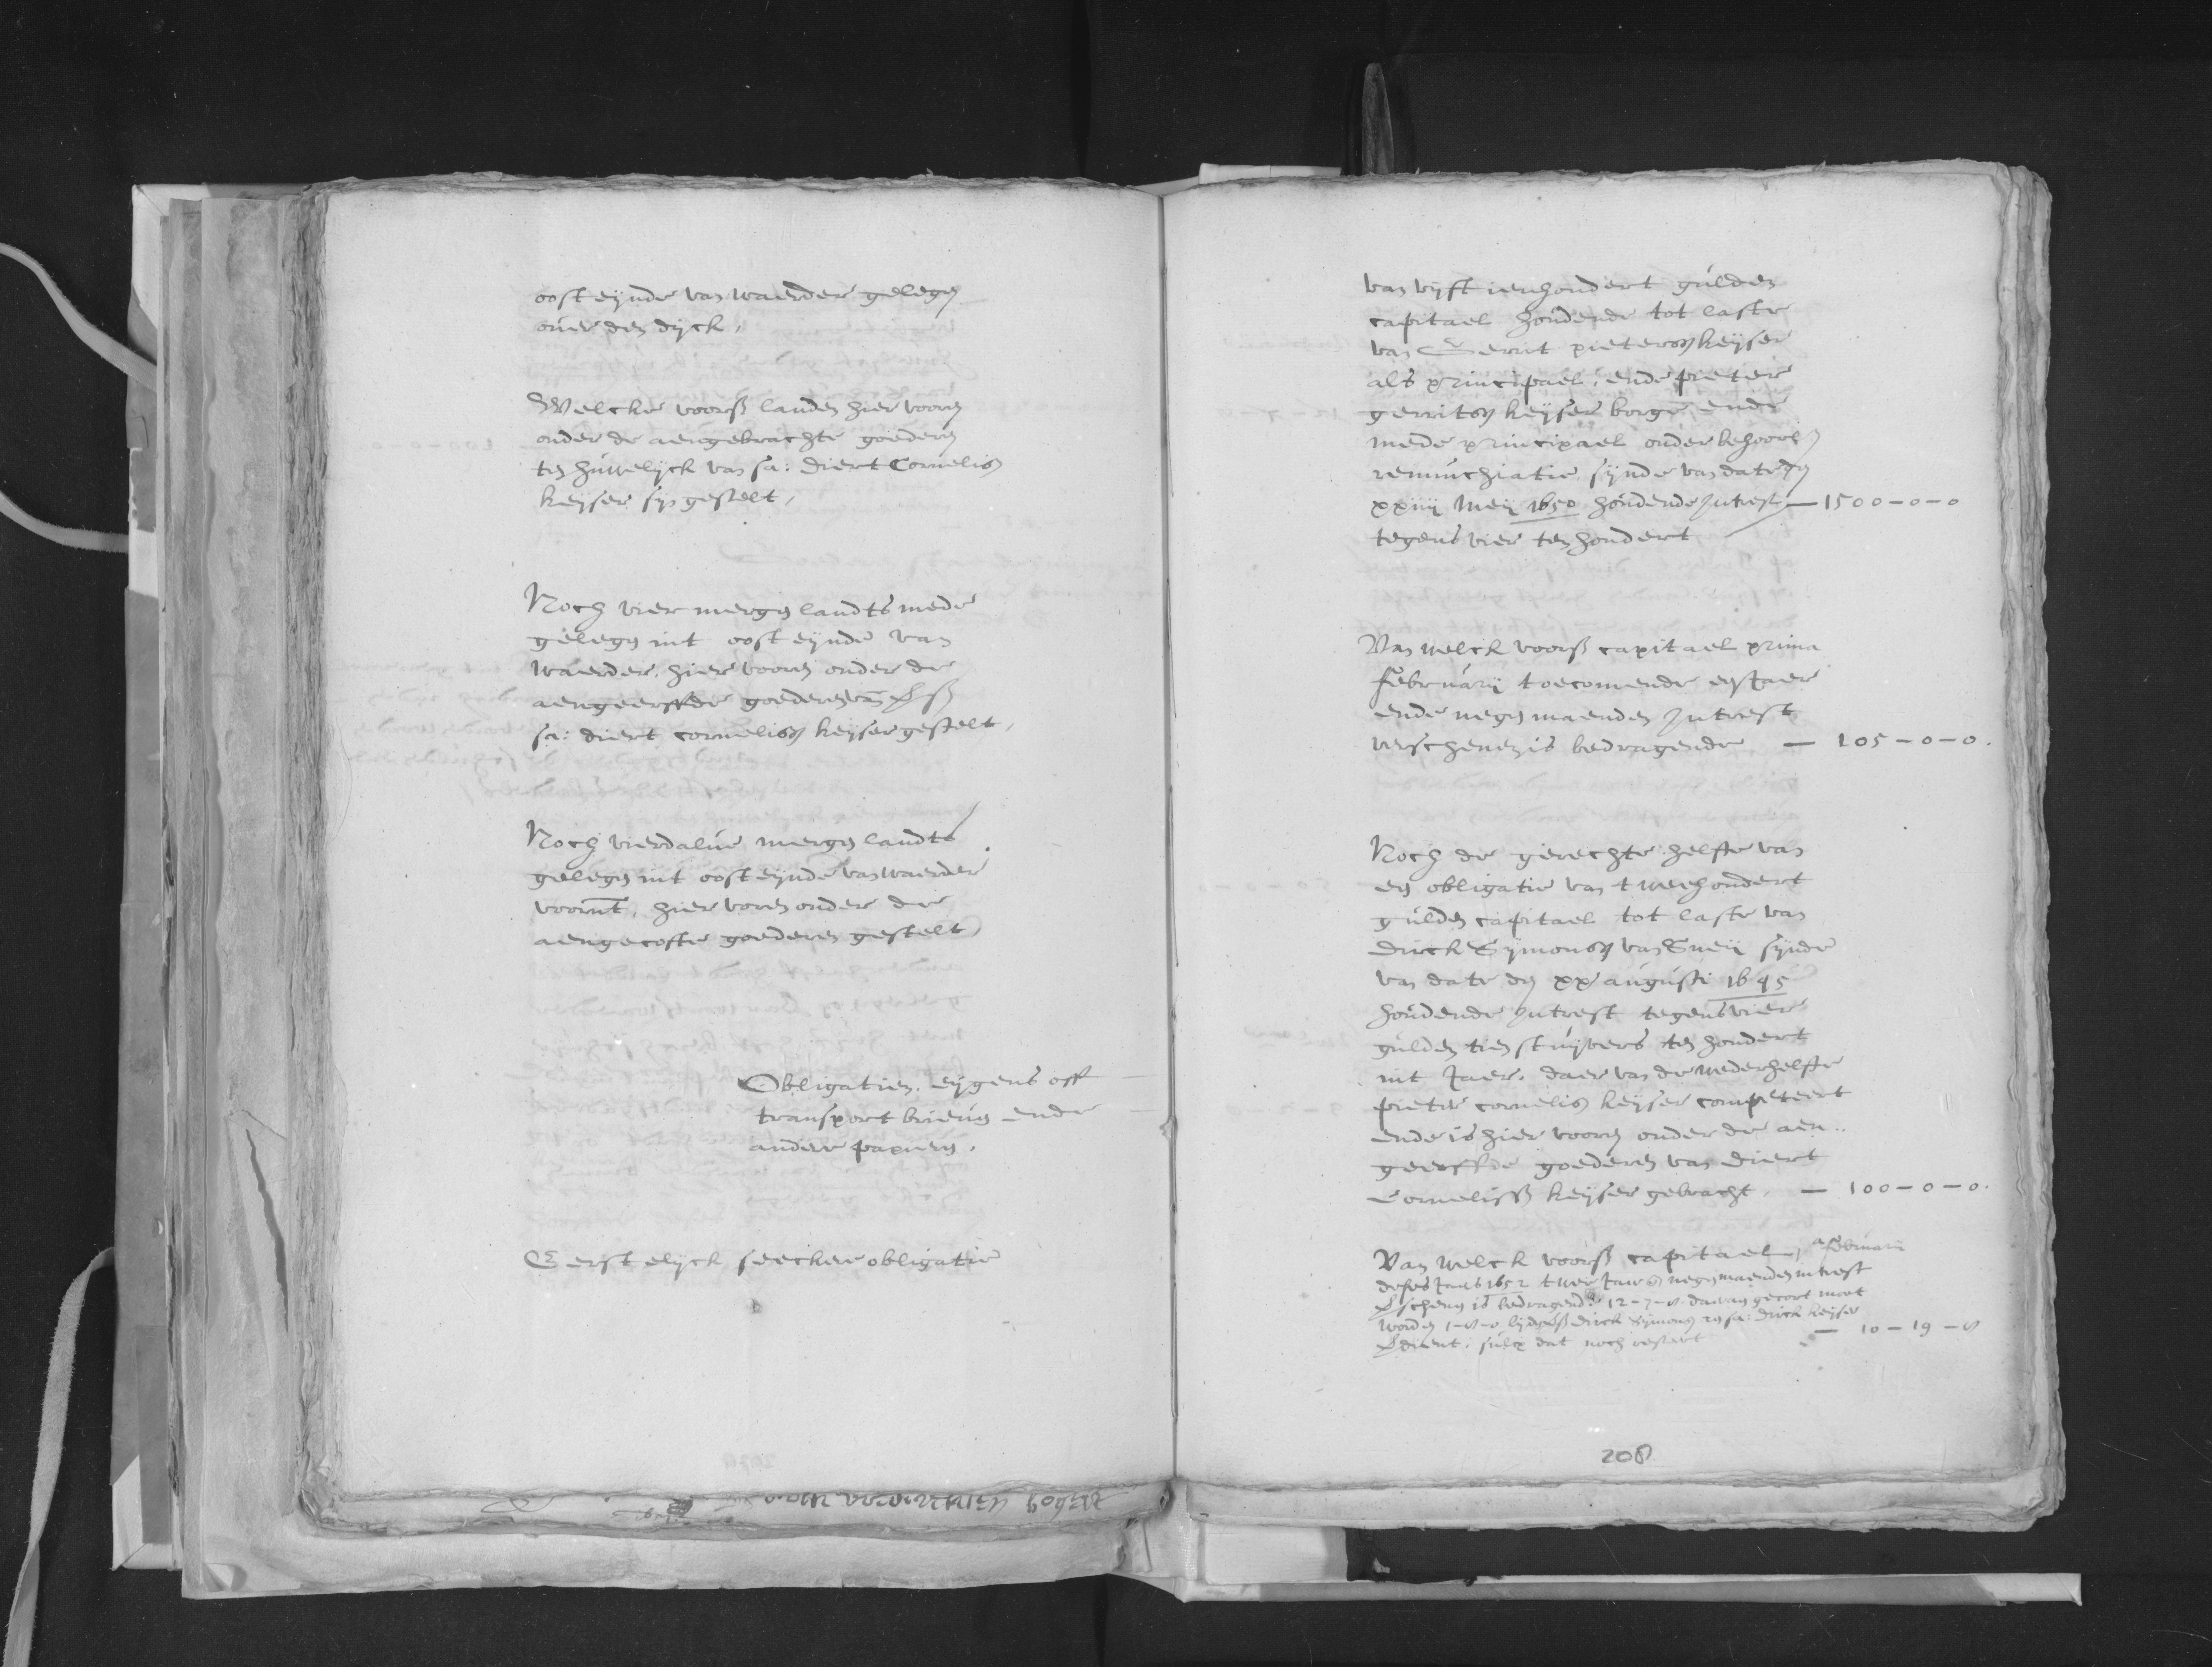 oosteijnde van waerder gelegen
over den dijck,
Welcke voorss landen hier vooren
onder de aengebrachte goederen
ten huwelijck van sa: diert Cornelisz
keijser sijn gestelt,
Noch vier mergen landts mede
gelegen int oosteijnde van
waerder, hier vooren onder de
aengeerffde goederen van
sa: diert cornelisz keijser gestelt,
Noch vierdalve mergen landts
gelegen int oosteijnde van waerder
voornt, hier voren onder de
aengecofte goederen gestelt
Obligatien, eijgens off
transport brieven ende
andere papieren,
Eerstelijck seeckere obligatie
van vijftienhondert gulden
capitael houdende tot laste
van Gerrit pietersz keijser
als principael, ende pieter
gerritsz keijser borge ende
mede principael onder behoorl
renunchiatie sijnde van date den
xxiiij Meij 1650 houdende Intrest — 1500-0-0
tegens vier ten hondert
Van welck voorss capitael prima
februarij toecomende een Jaer
ende negen maenden Intrest
verschenen is bedragende — 105-0-0.
Noch de gerechte helffte van
een obligatie van tweehondert
gulden capitael tot laste van
dirck Sijmonsz van Sneij sijnde
van date den xx augusti 1645
houdende Intrest tegens vier
gulden tien stuijvers ten hondert
int Jaer, daer van de wederhelffte
pieter cornelisz keijser competeert
ende is hier vooren onder de aen..
geerffde goederen van diert
Cornelissz keijser gebracht, — 100-0-0.
Van welck voorss capitael, februarij
deses Jaers 1652 twee Jaeren negen maenden intrest
verschenen is bedragende 12-7-0 daer van gecort moet
worden 1-8-0 dirck sijmonsz sa: dirck keijser
verdient, sulcx dat noch resteert — 10-19-0
208